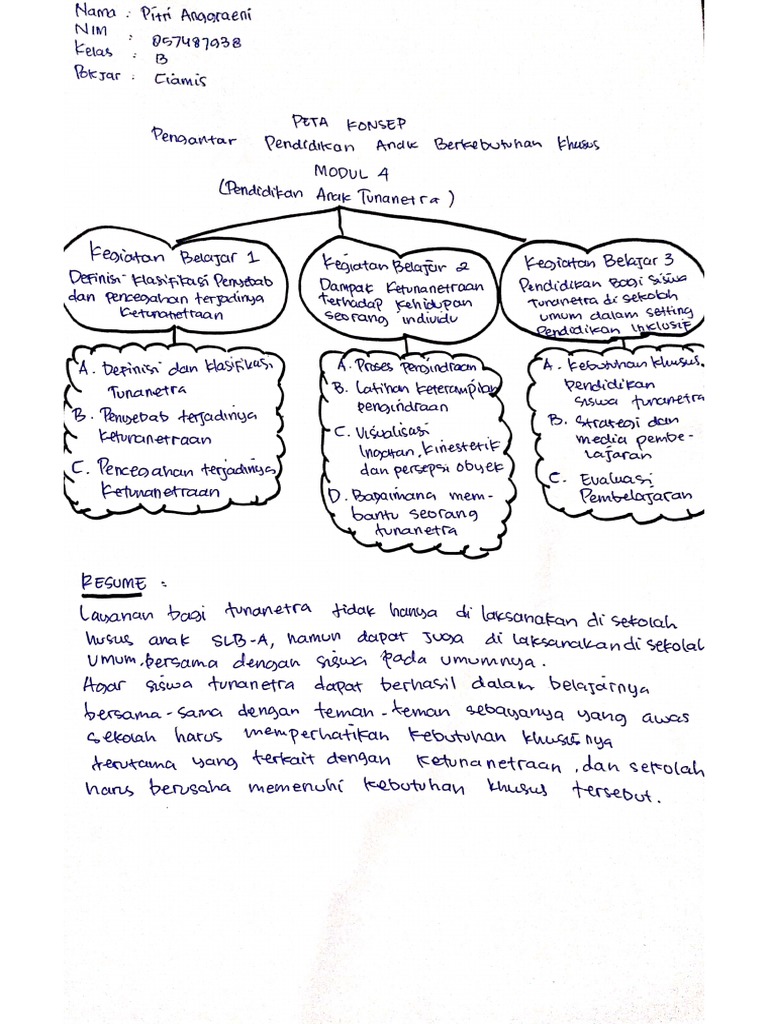 Nama : Pitri Anggraeni
NIM : 857487938
Kelas : B
Pokjar : Ciamis
PETA KONSEP
Pengantar Pendidikan Anak Berkebutuhan Khusus
MODUL 4
(Pendidikan Anak Tunanetra)
Kegiatan Belajar 1
Definisi Klasifikasi Penyebab
dan pencegahan terjadinya
Ketunanetraan
A. Definisi dan Klasifikasi
Tunanetra
B. Penyebab terjadinya
Ketunanetraan
C. Pencegahan terjadinya
Ketunanetraan
Kegiatan Belajar 2
Dampak Ketunanetraan
terhadap Kehidupan
seorang individu
A. Proses Pengindraan
B. Latihan Keterampilan
pengindraan
C. Visualisasi
Ingatan, Kinestetik
dan persepsi obyek
D. Bagaimana mem-
bantu seorang
tunanetra
Kegiatan Belajar 3
Pendidikan Bagi Siswa
Tunanetra di sekolah
umum dalam setting
Pendidikan Inklusif
A. Kebutuhan Khusus.
pendidikan
siswa tunanetra
B. Strategi dan
media pembe-
lajaran
C. Evaluasi
Pembelajaran
RESUME :
Layanan bagi tunanetra tidak hanya di laksanakan di sekolah
husus anak SLB-A, namun dapat juga di laksanakan di sekolal
umum, bersama dengan siswa pada umumnya.
Agar siswa tunanetra dapat berhasil dalam belajarnya
bersama-sama dengan teman-teman sebayanya yang awas
sekolah harus memperhatikan kebutuhan khususnya
terutama yang terkait dengan ketunanetraan, dan sekolah
harus berusaha memenuhi kebutuhan khusus tersebut.